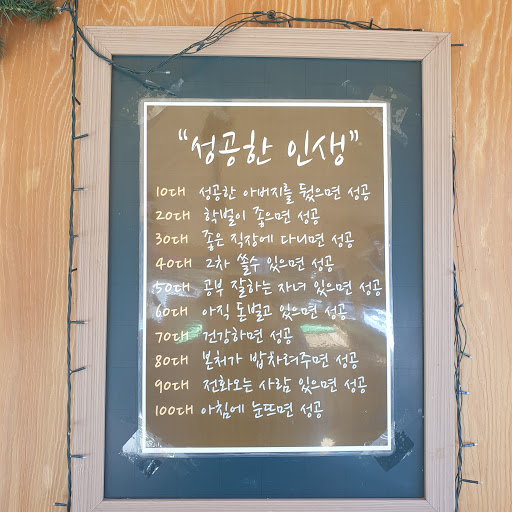 “성공한 인생”
10대 성공한 아버지를 뒀으면 성공
20대 학벌이 좋으면 성공
30대 좋은 직장에 다니면 성공
40대 2차 쏠수 있으면 성공
50대 공부 잘하는 자녀 있으면 성공
60대 아직 돈벌고 있으면 성공
70대 건강하면 성공
80대 본처가 밥차려주면 성공
90대 전화오는 사람 있으면 성공
100대 아침에 눈뜨면 성공